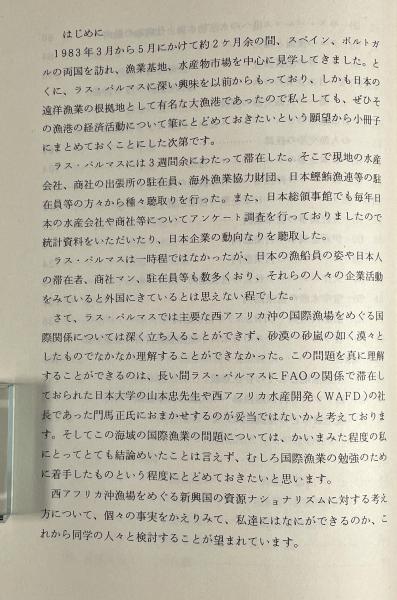 はじめに
1983年3月から5月にかけて約2ケ月余の間、スペイン、ポルトガ
ルの両国を訪れ、漁業基地、水産物市場を中心に見学してきました。と
くに、ラス・パルマスに深い興味を以前からもっており、しかも日本の
遠洋漁業の根拠地として有名な大漁港であったので私としても、ぜひそ
の漁港の経済活動について筆にとどめておきたいという願望から小冊子
にまとめておくことにした次第です。
ラス・パルマスには3週間余にわたって滞在した。そこで現地の水産
会社、商社の出張所の駐在員、海外漁業協力財団、日本鰹鮪漁連等の駐
在員等の方々から種々聴取りを行った。また、日本総領事館でも毎年日
本の水産会社や商社等についてアンケート調査を行っておりましたので
統計資料をいただいたり、日本企業の動向なりを聴取した。
ラス・パルマスは一時程ではなかったが、日本の漁船員の姿や日本人
の滞在者、商社マン、駐在員等も数多くおり、それらの人々の企業活動
をみていると外国にきているとは思えない程でした。
さて、ラス・パルマスでは主要な西アフリカ沖の国際漁場をめぐる国
際関係については深く立ち入ることができず、砂漠の砂嵐の如く漠々と
したものでなかなか理解することができなかった。この問題を真に理解
することができるのは、長い間ラス・パルマスにFAOの関係で滞在し
ておられた日本大学の山本忠先生や西アフリカ水産開発(WAFD)の社
長であった門馬正氏におまかせするのが妥当ではないかと考えておりま
す。そしてこの海域の国際漁業の問題については、かいまみた程度の私
にとってとても結論めいたことは言えず、むしろ国際漁業の勉強のため
に着手したものという程度にとどめておきたいと思います。
西アフリカ沖漁場をめぐる新興国の資源ナショナリズムに対する考え
方について、個々の事実をかえりみて、私達にはなにができるのか、こ
れから同学の人々と検討することが望まれています。